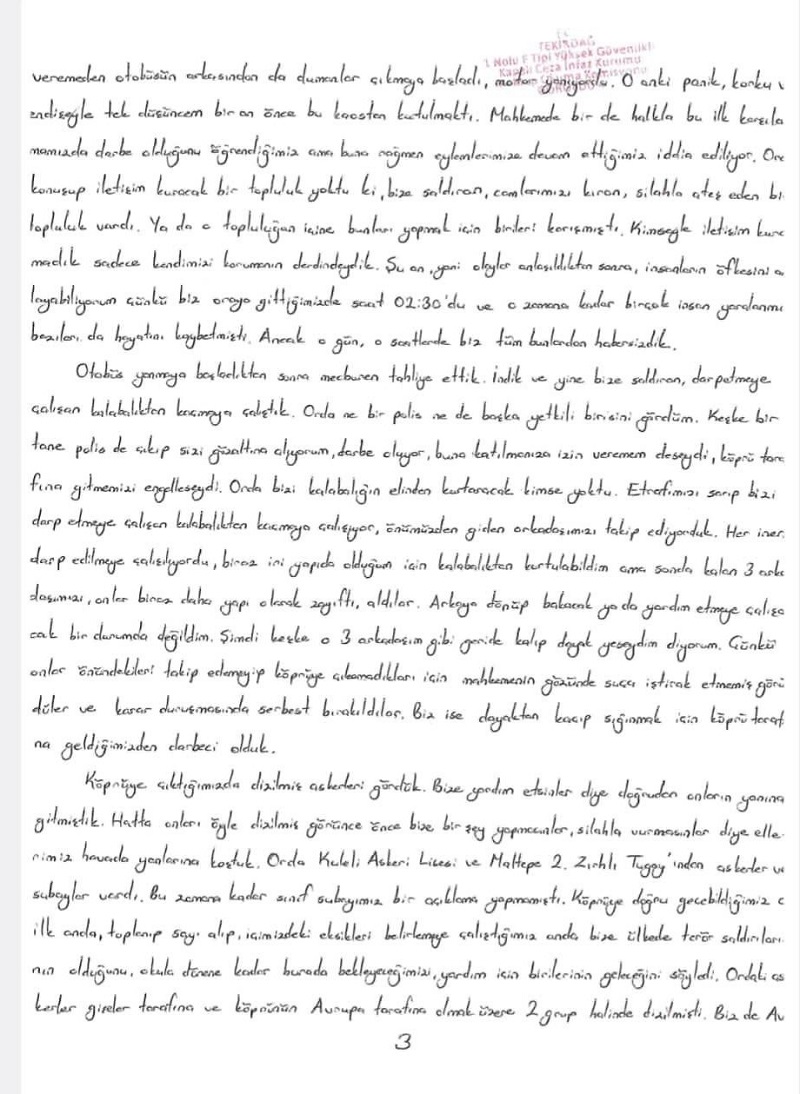 TEKİRDAĞ
1 Nolu F Tipi Yüksek Güvenlikli
Kapalı Ceza İnfaz Kurumu
veremeden otobüsün arkasından da dumanlar çıkmaya başladı, motor yanıyordu. O anki panik, korku v
endişeyle tek düşüncem bir an önce bu kaostan kurtulmaktı. Mahkemede bir de halkla bu ilk karşıla
mamızda darbe olduğunu öğrendiğimiz ama buna rağmen eylemlerimize devam ettiğimiz iddia ediliyor. Ora
konuşup iletişim kuracak bir topluluk yoktu ki, bize saldıran, camlarımızı kıran, silahla ateş eden bi
topluluk vardı. Ya da o topluluğun içine bunları yapmak için birileri karışmıştı. Kimseyle iletişim kura
madık sadece kendimizi korumanın derdindeydik. Şu an, yani olaylar anlaşıldıktan sonra, insanların öfkesini a
layabiliyorum çünkü biz oraya gittiğimizde saat 02:30'du ve o zamana kadar birçok insan yaralanmı
bazıları da hayatını kaybetmişti. Ancak o gün, o saatlerde biz tüm bunlardan habersizdik.
Otobüs yanmaya başladıktan sonra mecburen tahliye ettik. İndik ve yine bize saldıran, darpetmeye
çalışan kalabalıktan kaçmaya çalıştık. Orda ne bir polis ne de başka yetkili birisini gördüm. Keşke bir
tane polis de çıkıp sizi gözaltına alıyorum, darbe oluyor, buna katılmanıza izin veremem deseydi, köprü tara
fına gitmemizi engelleseydi. Orda bizi kalabalığın elinden kurtaracak kimse yoktu. Etrafımızı sarıp bizi
darp etmeye çalışan kalabalıktan kaçmaya çalışıyor, önümüzden giden arkadaşımızı takip ediyorduk. Her inen
darp edilmeye çalışılıyordu, biraz iri yapıda olduğum için kalabalıktan kurtulabildim ama sonda kalan 3 arka
daşımızı, onlar biraz daha yapı olarak zayıftı, aldılar. Arkaya dönüp bakacak ya da yardım etmeye çalışa
cak bir durumda değildim. Şimdi keşke o 3 arkadaşım gibi geride kalıp dayak yeseydim diyorum. Çünkü
onlar önündekileri takip edemeyip köprüye çıkamadıkları için mahkemenin gözünde suça iştirak etmemiş görü
düler ve karar duruşmasında serbest bırakıldılar. Biz ise dayaktan kaçıp sığınmak için köprü taraf
na geldiğimizden darbeci olduk.
Köprüye çıktığımızda dizilmiş askerleri gördük. Bize yardım etsinler diye doğrudan onların yanına
gitmiştik. Hatta onları öyle dizilmiş görünce önce bize bir şey yapmasınlar, silahla vurmasınlar diye elle-
rimiz havada yanlarına koştuk. Orda Kuleli Askeri Lisesi ve Maltepe 2. Zırhlı Tugay'ından askerler ve
subaylar vardı. Bu zamana kadar sınıf subayımız bir açıklama yapmamıştı. Köprüye doğru geçebildiğimiz o
ilk anda, toplanıp sayı alıp, içimizdeki eksikleri belirlemeye çalıştığımız anda bize ülkede terör saldırıları
nın olduğunu, okula dönene kadar burada bekleyeceğimizi, yardım için birilerinin geleceğini söyledi. Ordaki as
kerler gişeler tarafına ve köprünün Avrupa tarafına olmak üzere 2 grup halinde dizilmişti. Biz de Av
3